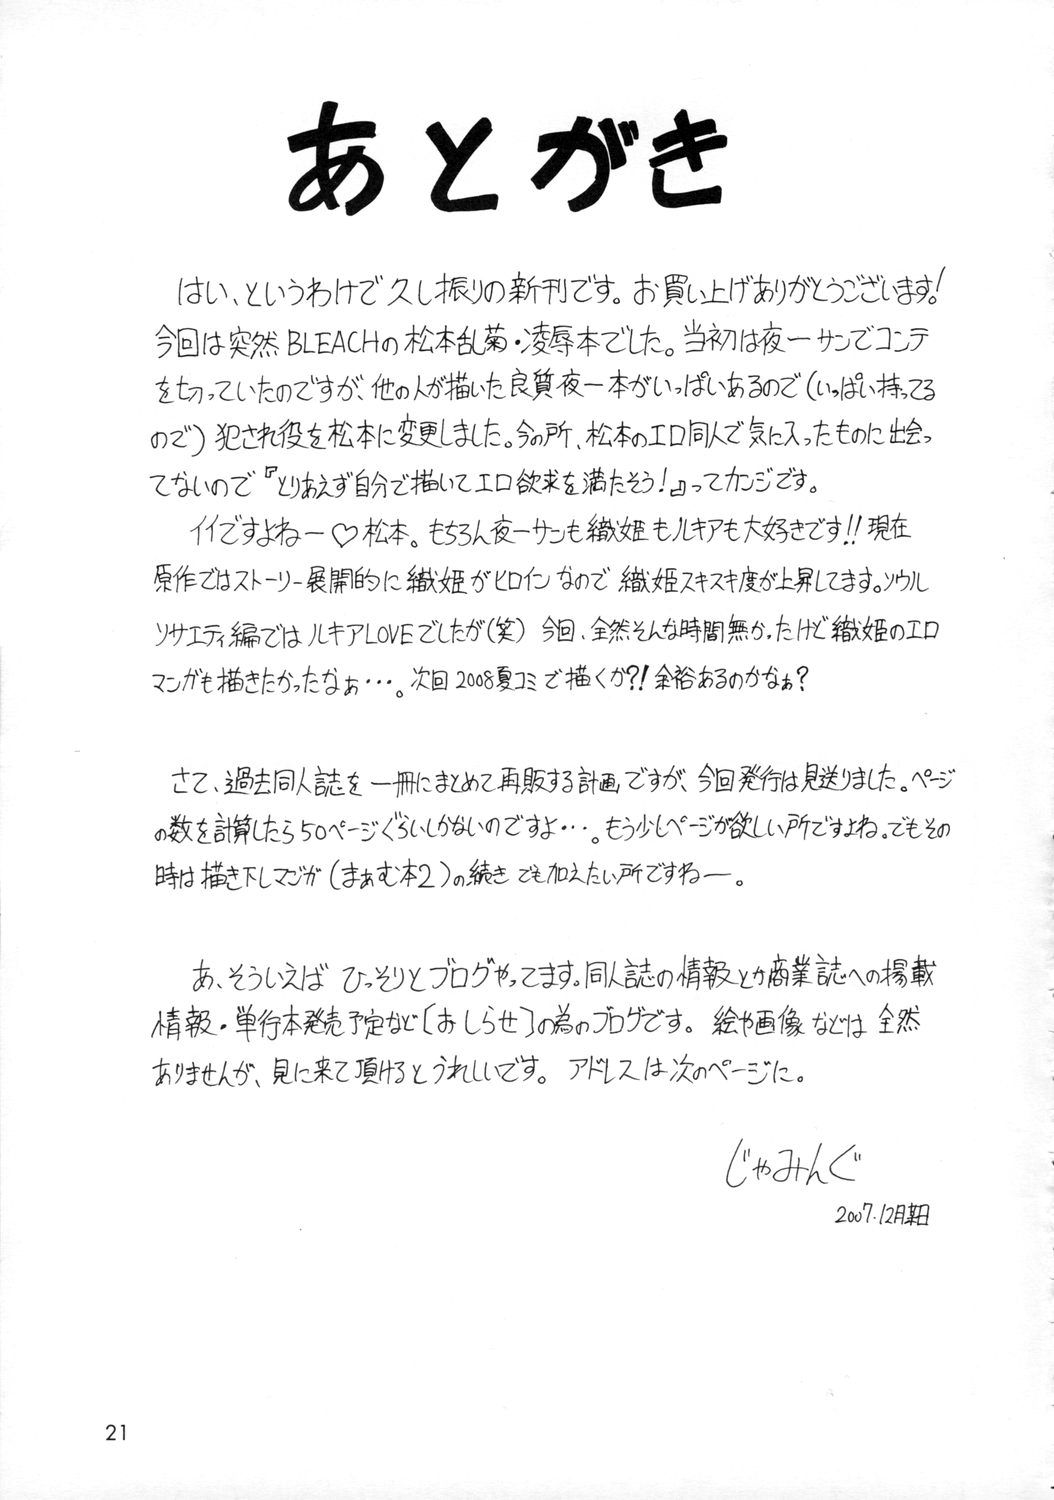 あとがき
はい、というわけで久し振りの新刊です。お買い上げありがとうございます!
今回は突然BLEACHの松本乱菊・凌辱本でした。当初は夜一サンでコンテ
を切っていたのですが、他の人が描いた良質夜一本がいっぱいあるので(いっぱい持ってる
ので)犯され役を松本に変更しました。今の所、松本のエロ同人で気に入ったものに出会っ
てないので『とりあえず自分で描いてエロ欲求を満たそう!』ってカンジです。
イイですよねー♡松本。もちろん夜一サンも織姫もルキアも大好きです!!現在
原作ではストーリー展開的に織姫がヒロインなので織姫スキスキ度が上昇してます。ソウル
ソサエティ編ではルキアLOVEでしたが(笑) 今回、全然そんな時間無かったけど織姫のエロ
マンガも描きたかったなぁ・・・。次回2008夏コミで描くか?!余裕あるのかなぁ?
さて、過去同人誌を一冊にまとめて再販する計画ですが、今回発行は見送りました。ページ
の数を計算したら50ページぐらいしかないのですよ・・・。もう少しページが欲しい所ですよね。でもその
時は描き下しマンガ(まぁむ本2)の続きでも加えたい所ですねー。
あ、そういえばひっそりとブログやってます。同人誌の情報とか商業誌への掲載
情報・単行本発売予定など[おしらせ]の為のブログです。絵や画像などは全然
ありませんが、見に来て頂けるとうれしいです。アドレスは次のページに。
じゃみんぐ
2007.12月某日
21